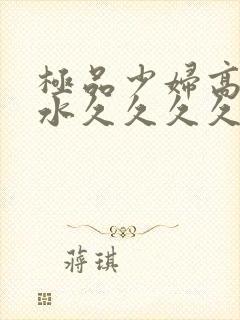 極品少婦高
水久久久久
蔣琪